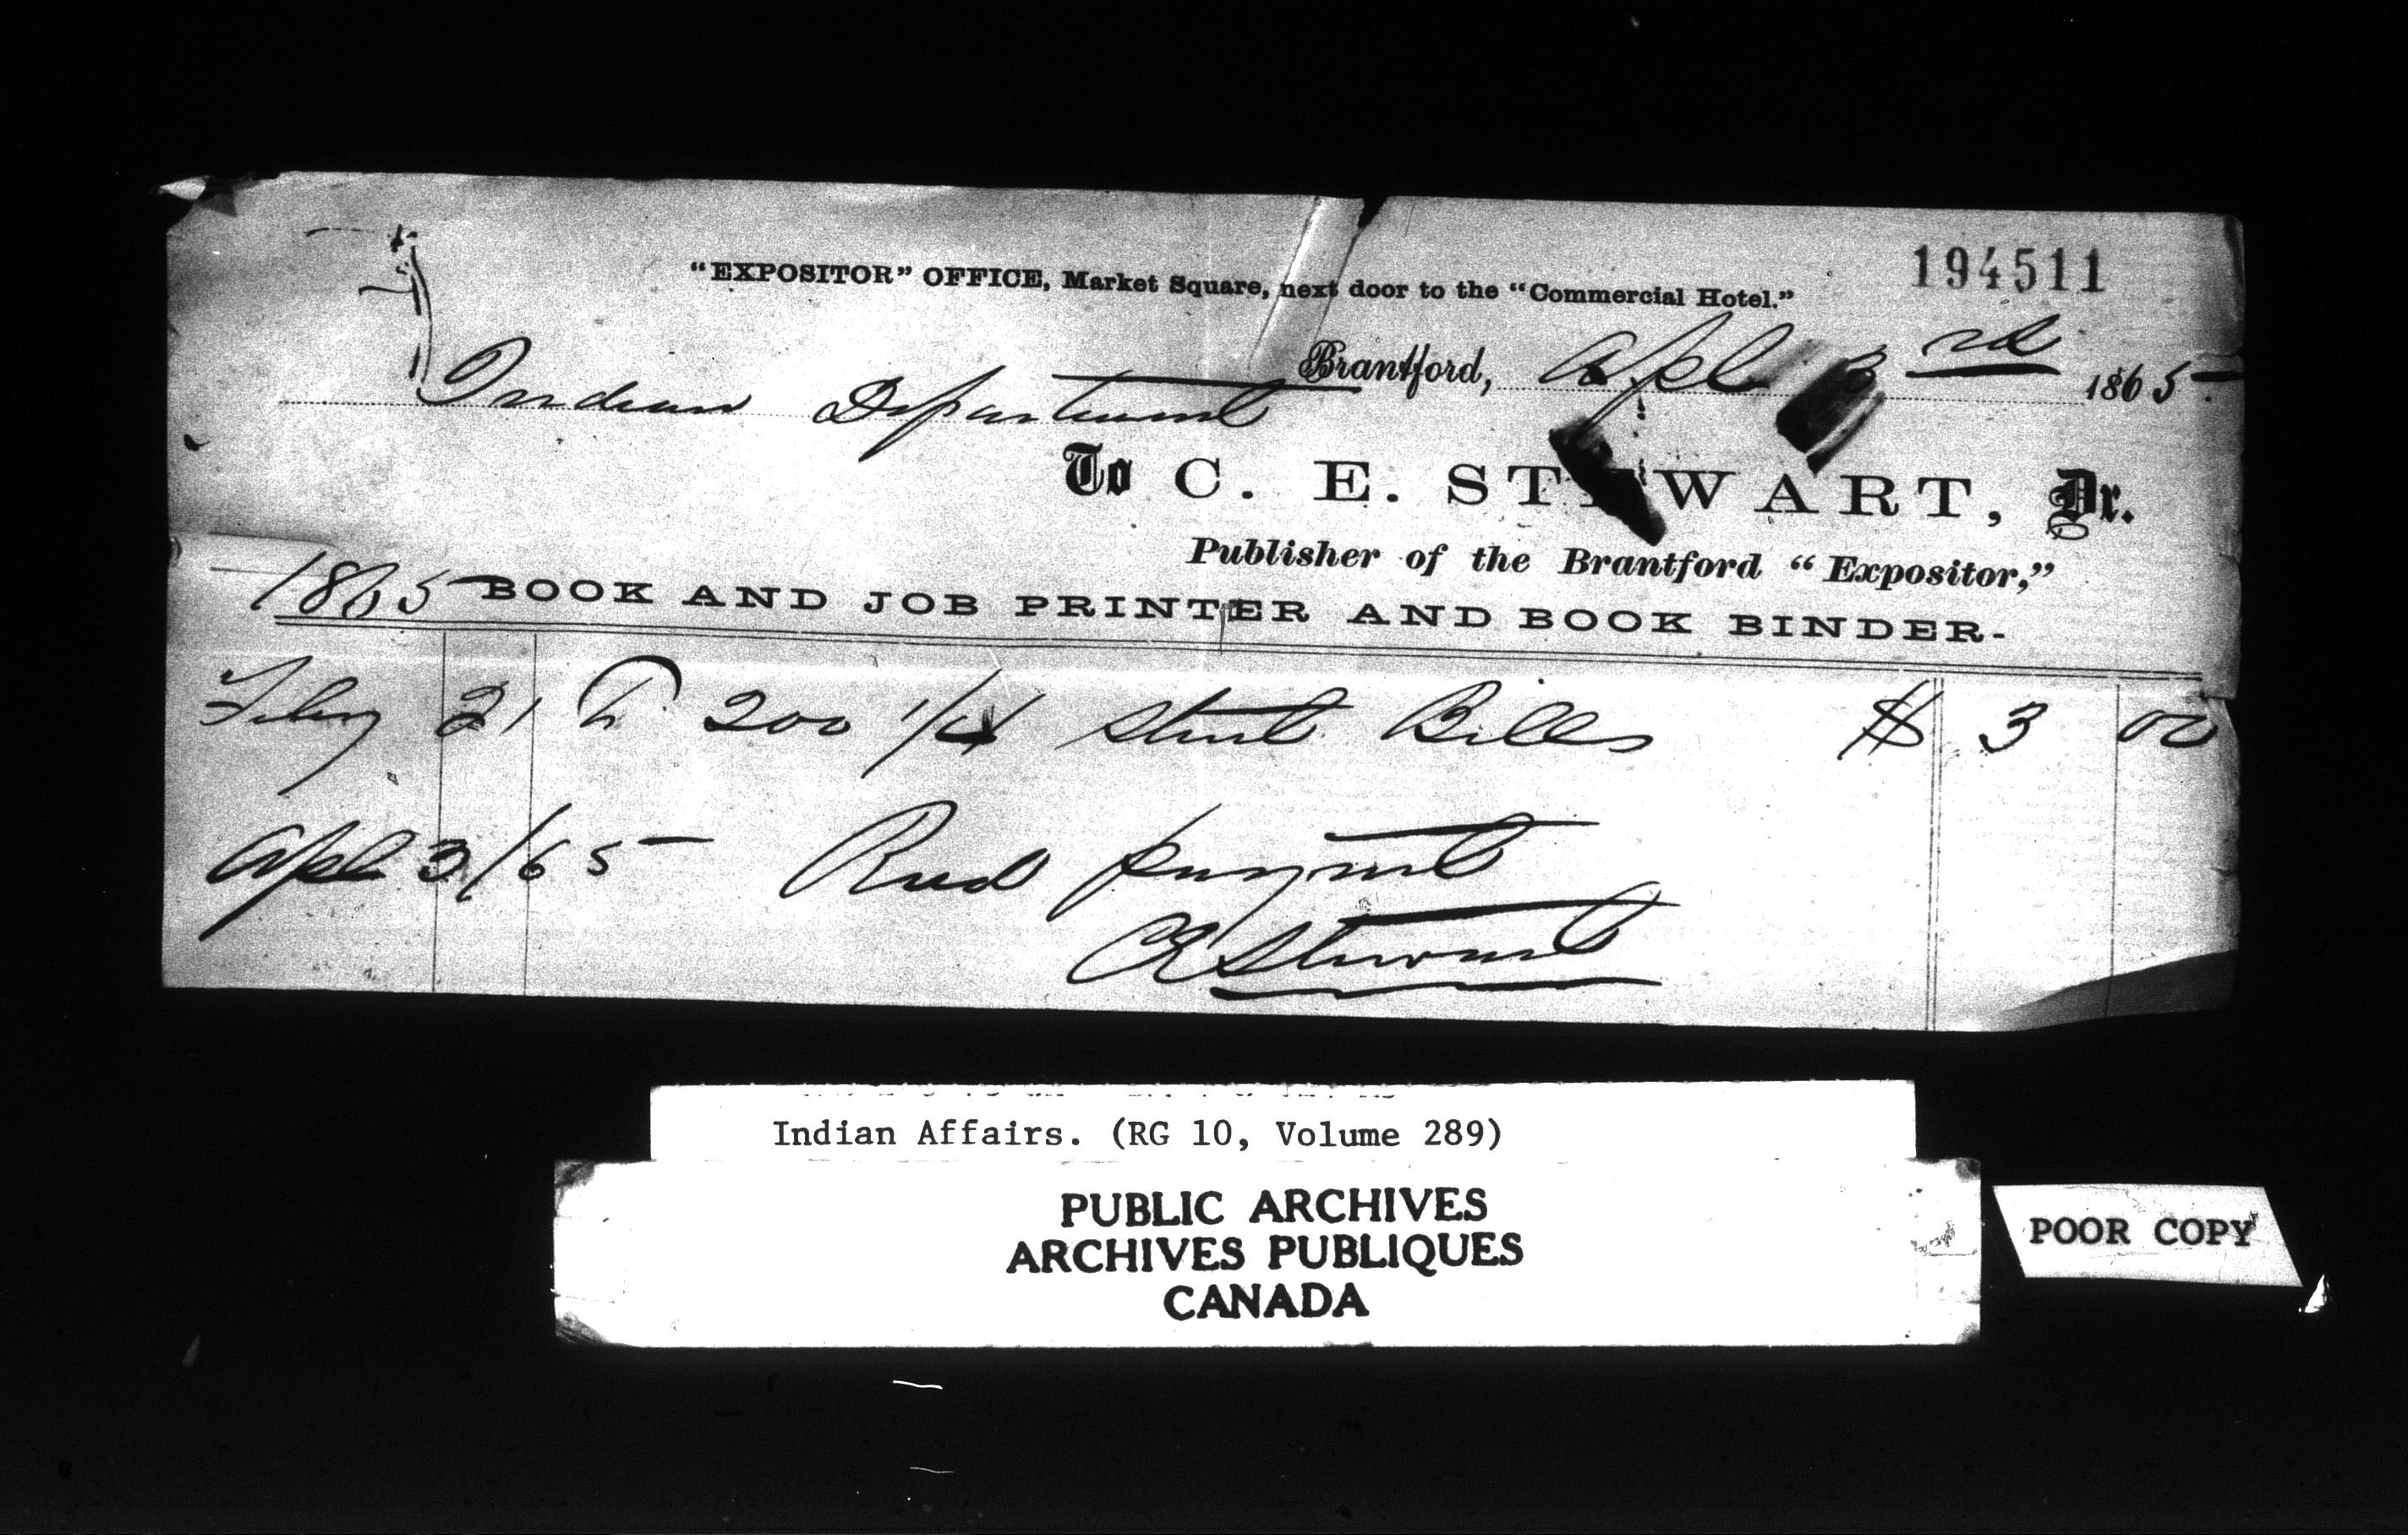 194511
"EXPOSITOR" OFFICE, Market Square, next door to the "Commercial Hotel."
Brantford, Apl 3rd 1865
Indian Department
To C. E. STEWART, Dr.
Publisher of the Brantford "Expositor,"
1865 BOOK AND JOB PRINTER AND BOOK BINDER-
Feby 21 To 200 1/4 Sheet Bills $ 3 00
Apl 3/65 Recd payment
CE Stewart
Indian Affairs. (RG 10, Volume 289)
PUBLIC ARCHIVES
ARCHIVES PUBLIQUES
CANADA
POOR COPY